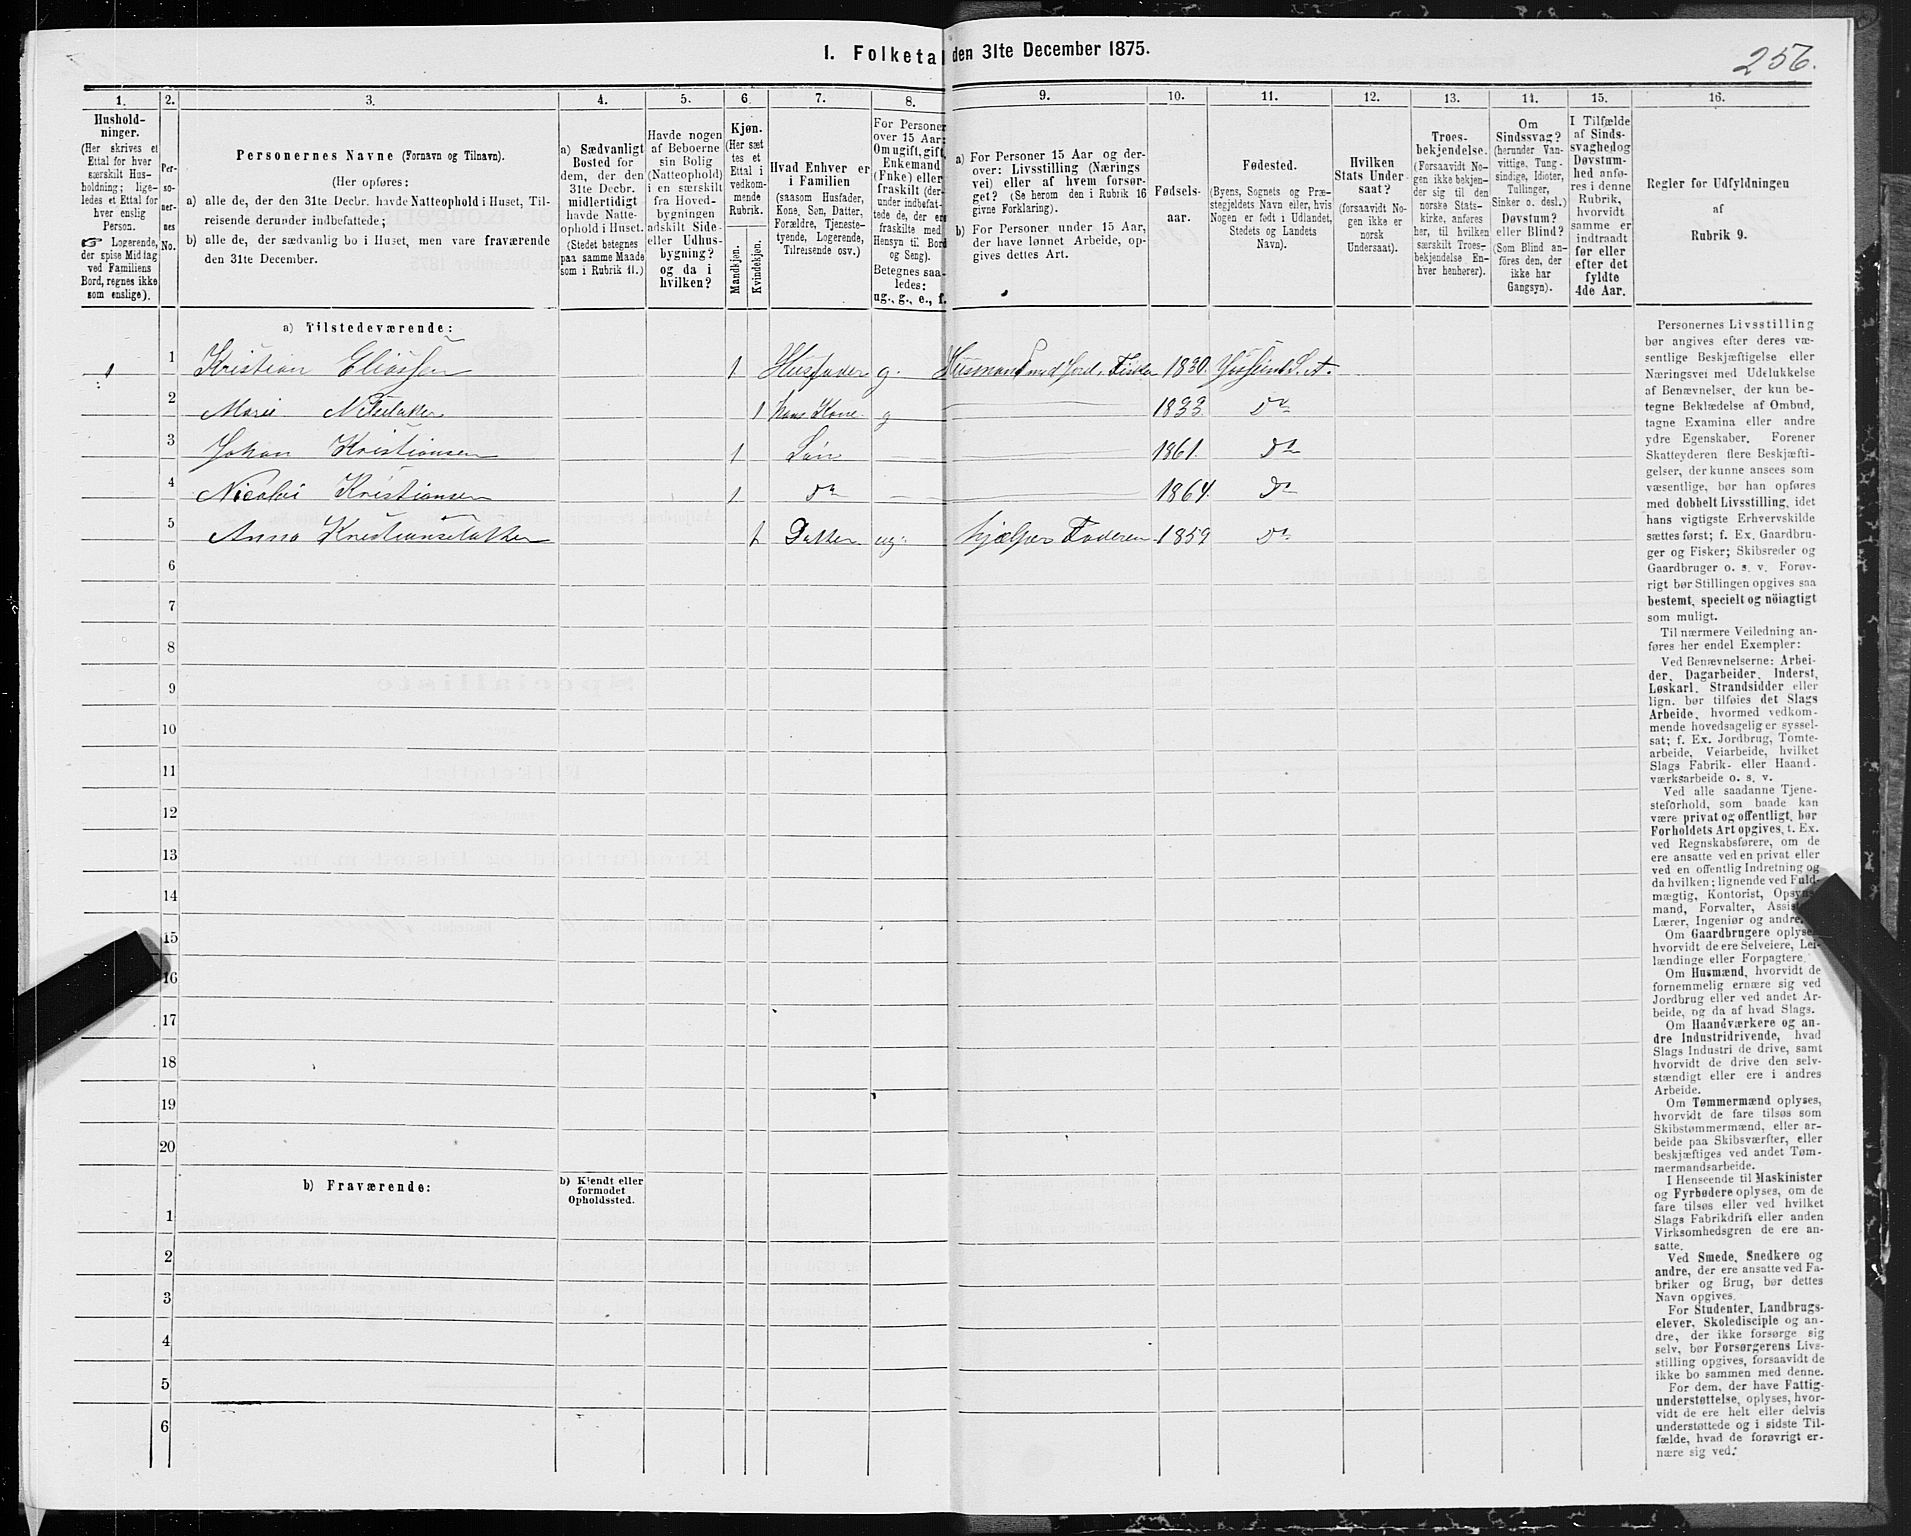 I. Folketal den 31te December 1875.
256.
1.
Hushold-
ninger.
(Her skrives et
Ettal for hver
særskilt Hus-
holdning; lige-
ledes et Ettal for
hver enslig
Person.
☞ Logerende,
der spise Middag
ved Familiens
Bord, regnes ikke
som enslige).
2.
Per-
so-
ner-
nes
No.
3.
Personernes Navne (Fornavn og Tilnavn).
(Her opføres:
a) alle de, der den 31te Decbr. havde Natteophold i Huset, Til-
reisende derunder indbefattede;
b) alle de, der sædvanlig bo i Huset, men vare fraværende
den 31te December.
4.
a) Sædvanligt
Bosted for
dem, der den
31te Decbr.
midlertidigt
havde Natte-
ophold i Huset.
(Stedet betegnes
paa samme Maade
som i Rubrik 11.)
5.
Havde nogen
af Beboerne
sin Bolig
(Natteophold)
i en særskilt
fra Hoved-
bygningen
adskilt Side-
eller Udhus-
bygning?
og da i
hvilken?
6.
Kjøn.
(Her sæt
tes et
Ettal i
vedkom-
mende
Rubrik.
Mandkjøn.
Kvindekjøn.
7.
Hvad Enhver er
i Familien
(saasom Husfader,
Kone, Søn, Datter,
Forældre, Tjeneste-
tyende, Logerende,
Tilreisende osv.)
8.
For Personer
over 15 Aar:
Om ugift, gift,
Enkemand
(Enke) eller
fraskilt (der-
under indbefat-
tede de, der ere
fraskilte med
Hensyn til Bord
og Seng).
Betegnes saa-
ledes:
ug., g., e., f.
9.
a) For Personer 15 Aar og der-
over: Livsstilling (Nærings
vei) eller af hvem forsør-
get? (Se herom den i Rubrik 16
givne Forklaring).
b) For Personer under 15 Aar,
der have lønnet Arbeide, op-
gives dettes Art.
10.
Fødsels-
aar.
11.
Fødested.
(Byens, Sognets og Præ-
stegjeldets Navn eller, hvis
Nogen er født i Udlandet,
Stedets og Landets
Navn).
12.
Hvilken
Stats Under-
saat?
(forsaavidt No-
gen ikke er
norsk
Undersaat).
13.
Troes-
bekjendelse.
(Forsaavidt No-
gen ikke bekjen-
der sig til den
norske Stats-
kirke, anføres
her, til hvilken
særskilt Troes-
bekjendelse En-
hver henhører).
14.
Om
Sindssvag?
(herunder Van-
vittige, Tung-
sindige, Idioter,
Tullinger,
Sinker o. desl.)
Døvstum?
eller Blind?
(Som Blind an-
føres den, der
ikke har
Gangsyn).
15.
I Tilfælde
af Sinds-
svaghed og
Døvstum-
hed anfø-
res i denne
Rubrik,
hvorvidt
samme er
indtraadt
før eller
efter det
fyldte
4de Aar.
16.
Regler for Udfyldningen
af
Rubrik 9.
a) Tilstedeværende:
1 1 Kristian Eliassen 1 Husfader g. Husmand med Jord, Fisker 1830.
2 Marie Nilsdatter 1 hans Kone g 1833 Do
3 Johan Kristiansen 1 Søn 1861. Do
4 Nicolai Kristiansen 1 Do 1864. Do
5 Anna Kristiansdatter 1 Datter ug. hjælper Faderen 1859 Do
6
7
8
9
10
11
12
13
14
15
16
17
18
19
20
b) Fraværende:
b) Kjendt eller
formodet
Opholdssted.
1
2
3
4
5
6
Personernes Livsstilling
bør angives efter deres væ-
sentlige Beskjæftigelse eller
Næringsvei med Udelukkelse
af Benævnelser, der kun be-
tegne Beklædelse af Ombud,
tagne Examina eller andre
ydre Egenskaber. Forener
Skatteyderen flere Beskjæfti-
gelser, der kunne ansees som
væsentlige, bør han opføres
med dobbelt Livsstilling, idet
hans vigtigste Erhvervskilde
sættes først; f. Ex. Gaardbru-
ger og Fisker; Skibsreder og
Gaardbruger o. s. v. Forøv-
rigt bør Stillingen opgives saa
bestemt, specielt og nöiagtigt
som muligt.
Til nærmere Veiledning an-
føres her endel Exempler:
Ved Benævnelserne: Arbei-
der, Dagarbeider, Inderst,
Løskarl, Strandsidder eller
lign. bør tilføies det Slags
Arbeide, hvormed vedkom-
mende hovedsagelig er syssel-
sat; f. Ex. Jordbrug, Tomte-
arbeide, Veiarbeide, hvilket
Slags Fabrik- eller Haand-
værksarbeide o. s. v.
Ved alle saadanne Tjene-
steforhold, som baade kan
være privat og offentligt, bør
Forholdets Art opgives, t. Ex.
ved Regnskabsførere, om de
ere ansatte ved en privat eller
ved en offentlig Indretning og
da hvilken; lignende ved Fuld-
mægtig, Kontorist, Opsyns-
mand, Forvalter, Assistent,
Lærer, Ingeniør og andre.
Om Gaardbrugere oplyses,
hvorvidt de ere Selveiere, Lei-
lændinge eller Forpagtere.
Om Husmænd, hvorvidt de
fornemmelig ernære sig ved
Jordbrug eller ved andet Ar-
beide, og da af hvad Slags.
Om Haandværkere og an-
dre Industridrivende, hvad
Slags Industri de drive, samt
hvorvidt de drive den selv-
stændigt eller ere i andres
Arbeide.
Om Tømmermænd oplyses,
hvorvidt de fare tilsøs som
Skibstømmermænd, eller ar-
beide paa Skibsværfter, eller
beskjæftiges ved andet Tøm-
mermandsarbeide.
I Henseende til Maskinister
og Fyrbødere oplyses, om de
fare tilsøs eller ved hvilket
Slags Fabrikdrift eller anden
Virksomhedsgren de ere an-
satte.
Ved Smede, Snedkere og
andre, der ere ansatte ved Fa-
briker og Brug, bør dettes
Navn opgives.
For Studenter, Landbrugs-
elever, Skoledisciple og an-
dre, der ikke forsørge sig
selv, bør Forsørgerens Livs-
stilling opgives, forsaavidt de
ikke bo sammen med denne.
For dem, der have Fattig-
understøttelse, oplyses, hvor-
vidt de ere helt eller delvis
understøttede og i sidste Til-
fælde, hvad de forøvrigt er-
nære sig ved.